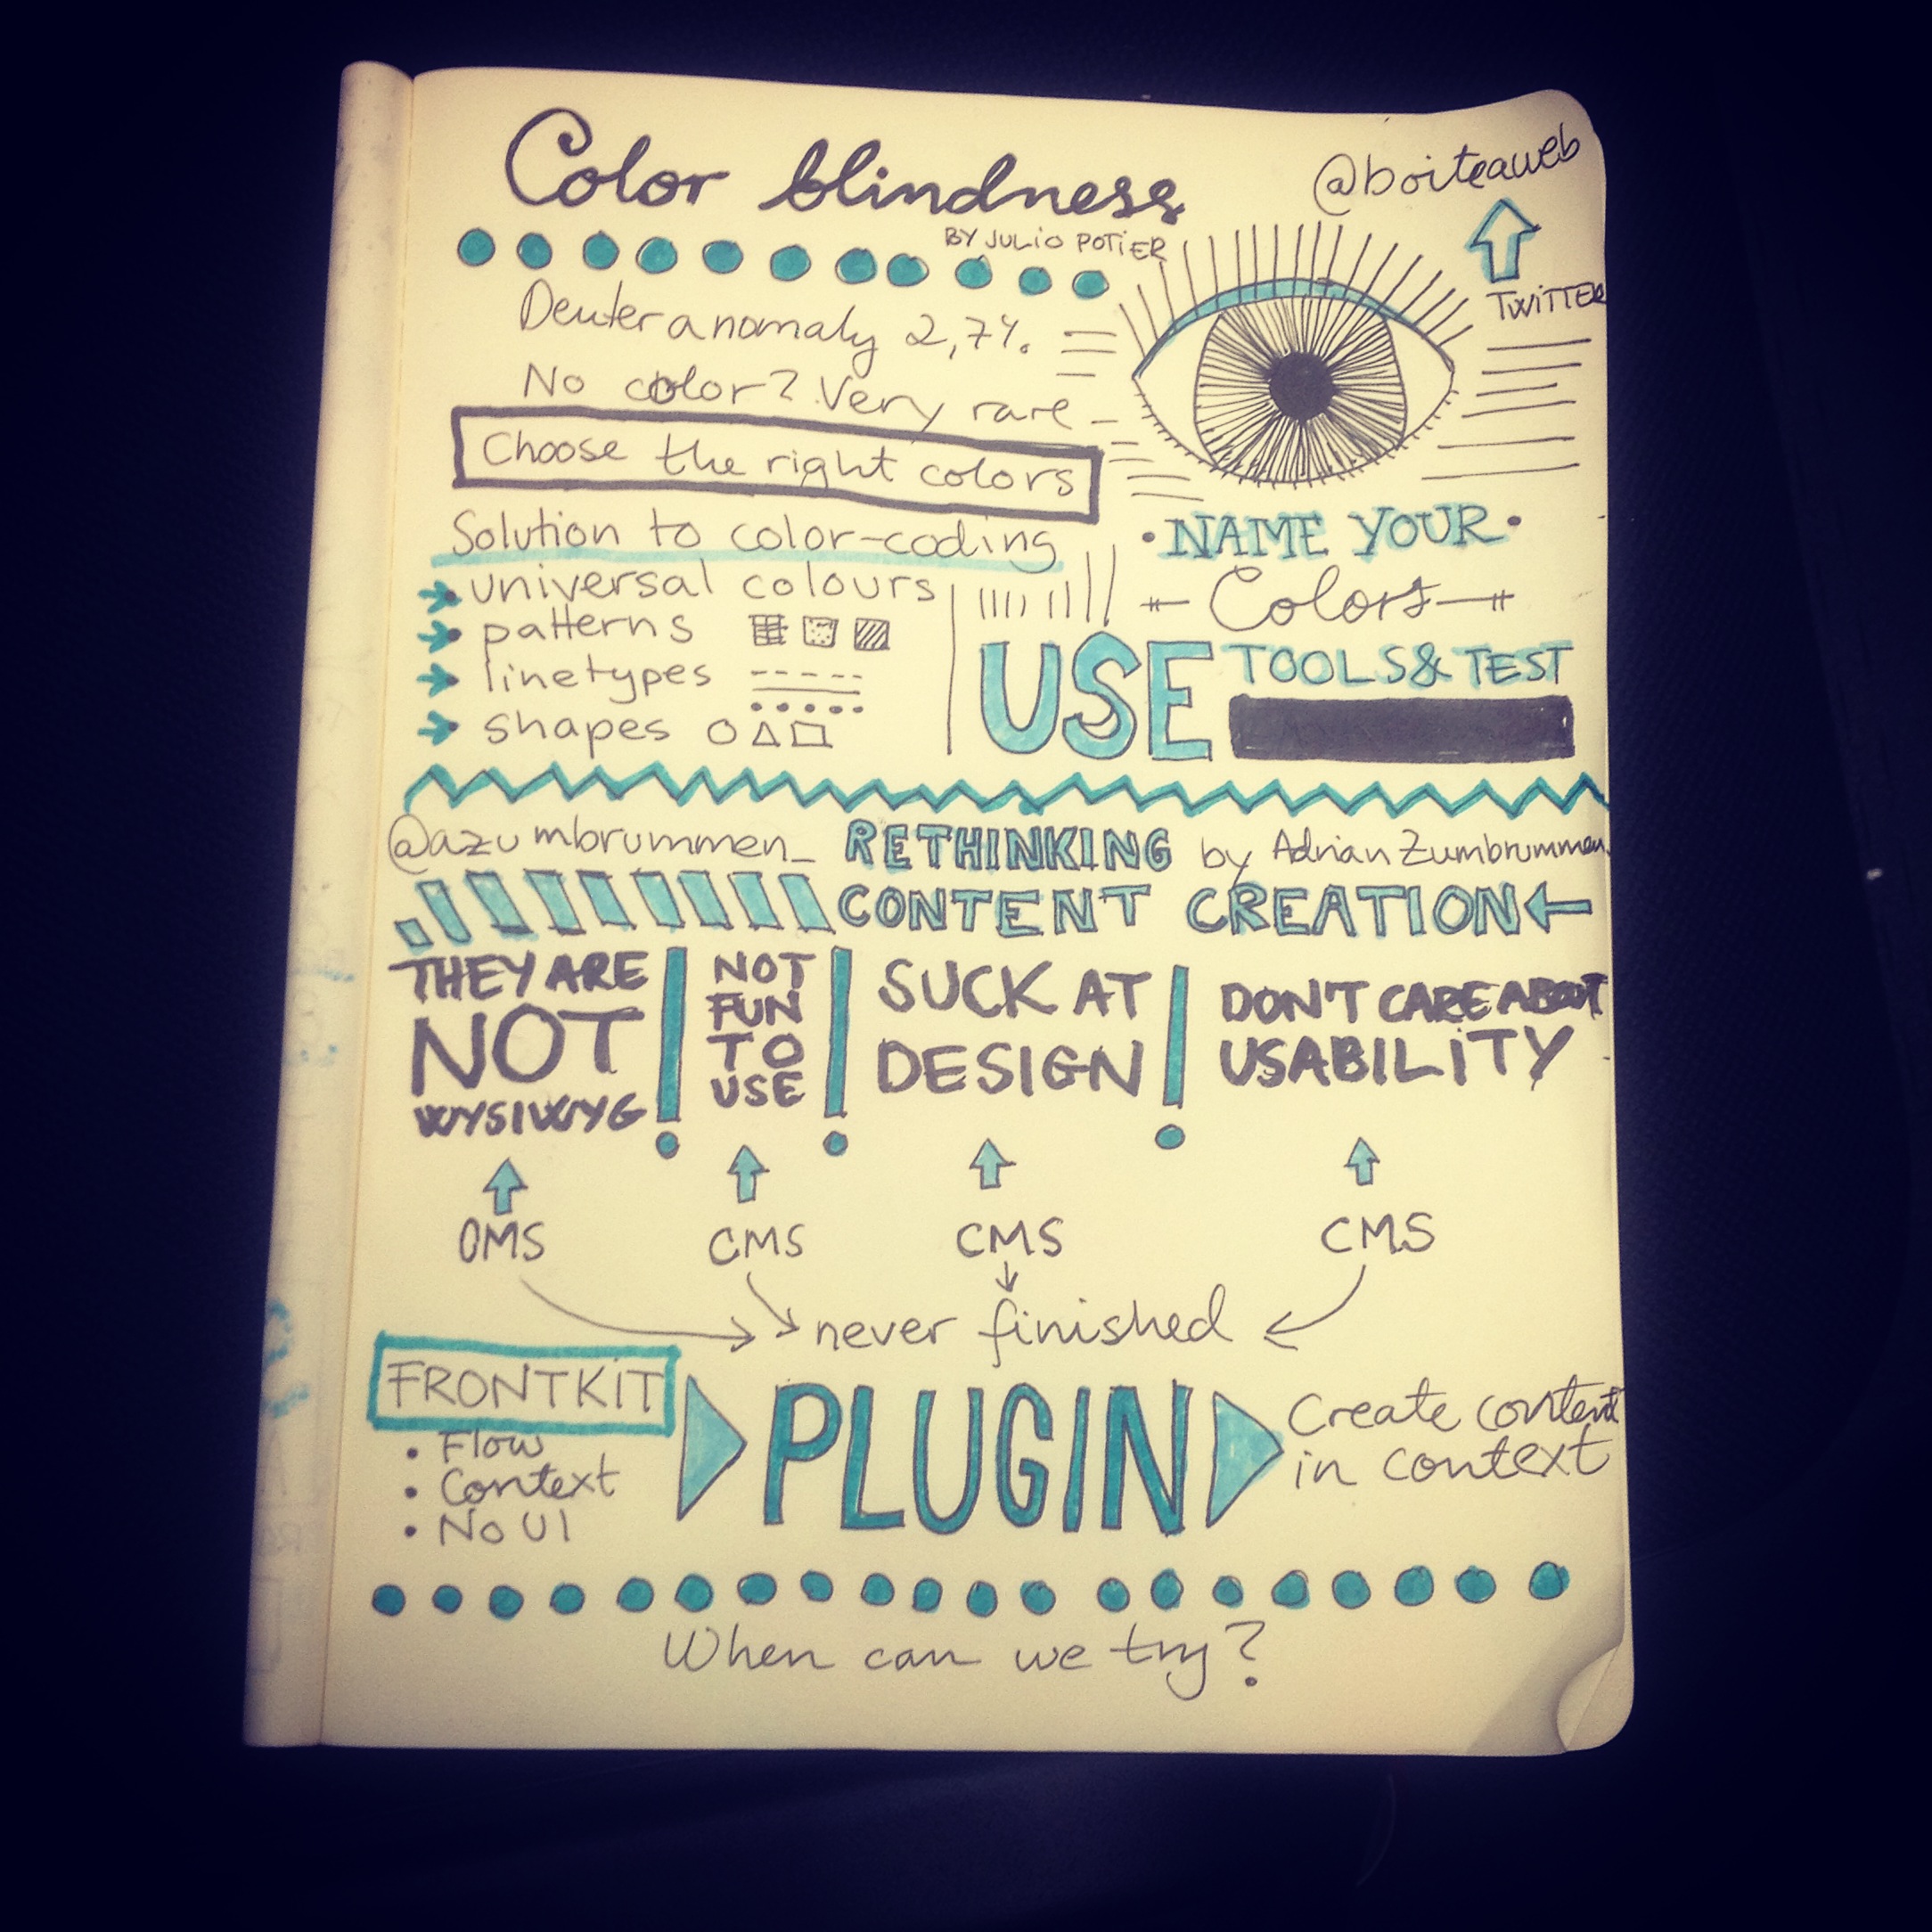 Color blindness
BY JULIO POTIER
@boiteaweb
TWITTER
Deuteranomaly 2,7%
No color? Very rare
Choose the right colors
Solution to color-coding
universal colours
patterns
linetypes
shapes
• NAME YOUR •
Colors
USE TOOLS & TEST
@azumbrummen_ RETHINKING by Adrian Zumbrummen.
CONTENT CREATION
THEY ARE
NOT
WYSIWYG
NOT
FUN
TO
USE
SUCK AT
DESIGN
DON'T CARE ABOUT
USABILITY
CMS CMS CMS CMS
never finished
FRONTKIT
• Flow
• Context
• No UI
PLUGIN
Create content
in context
When can we try?